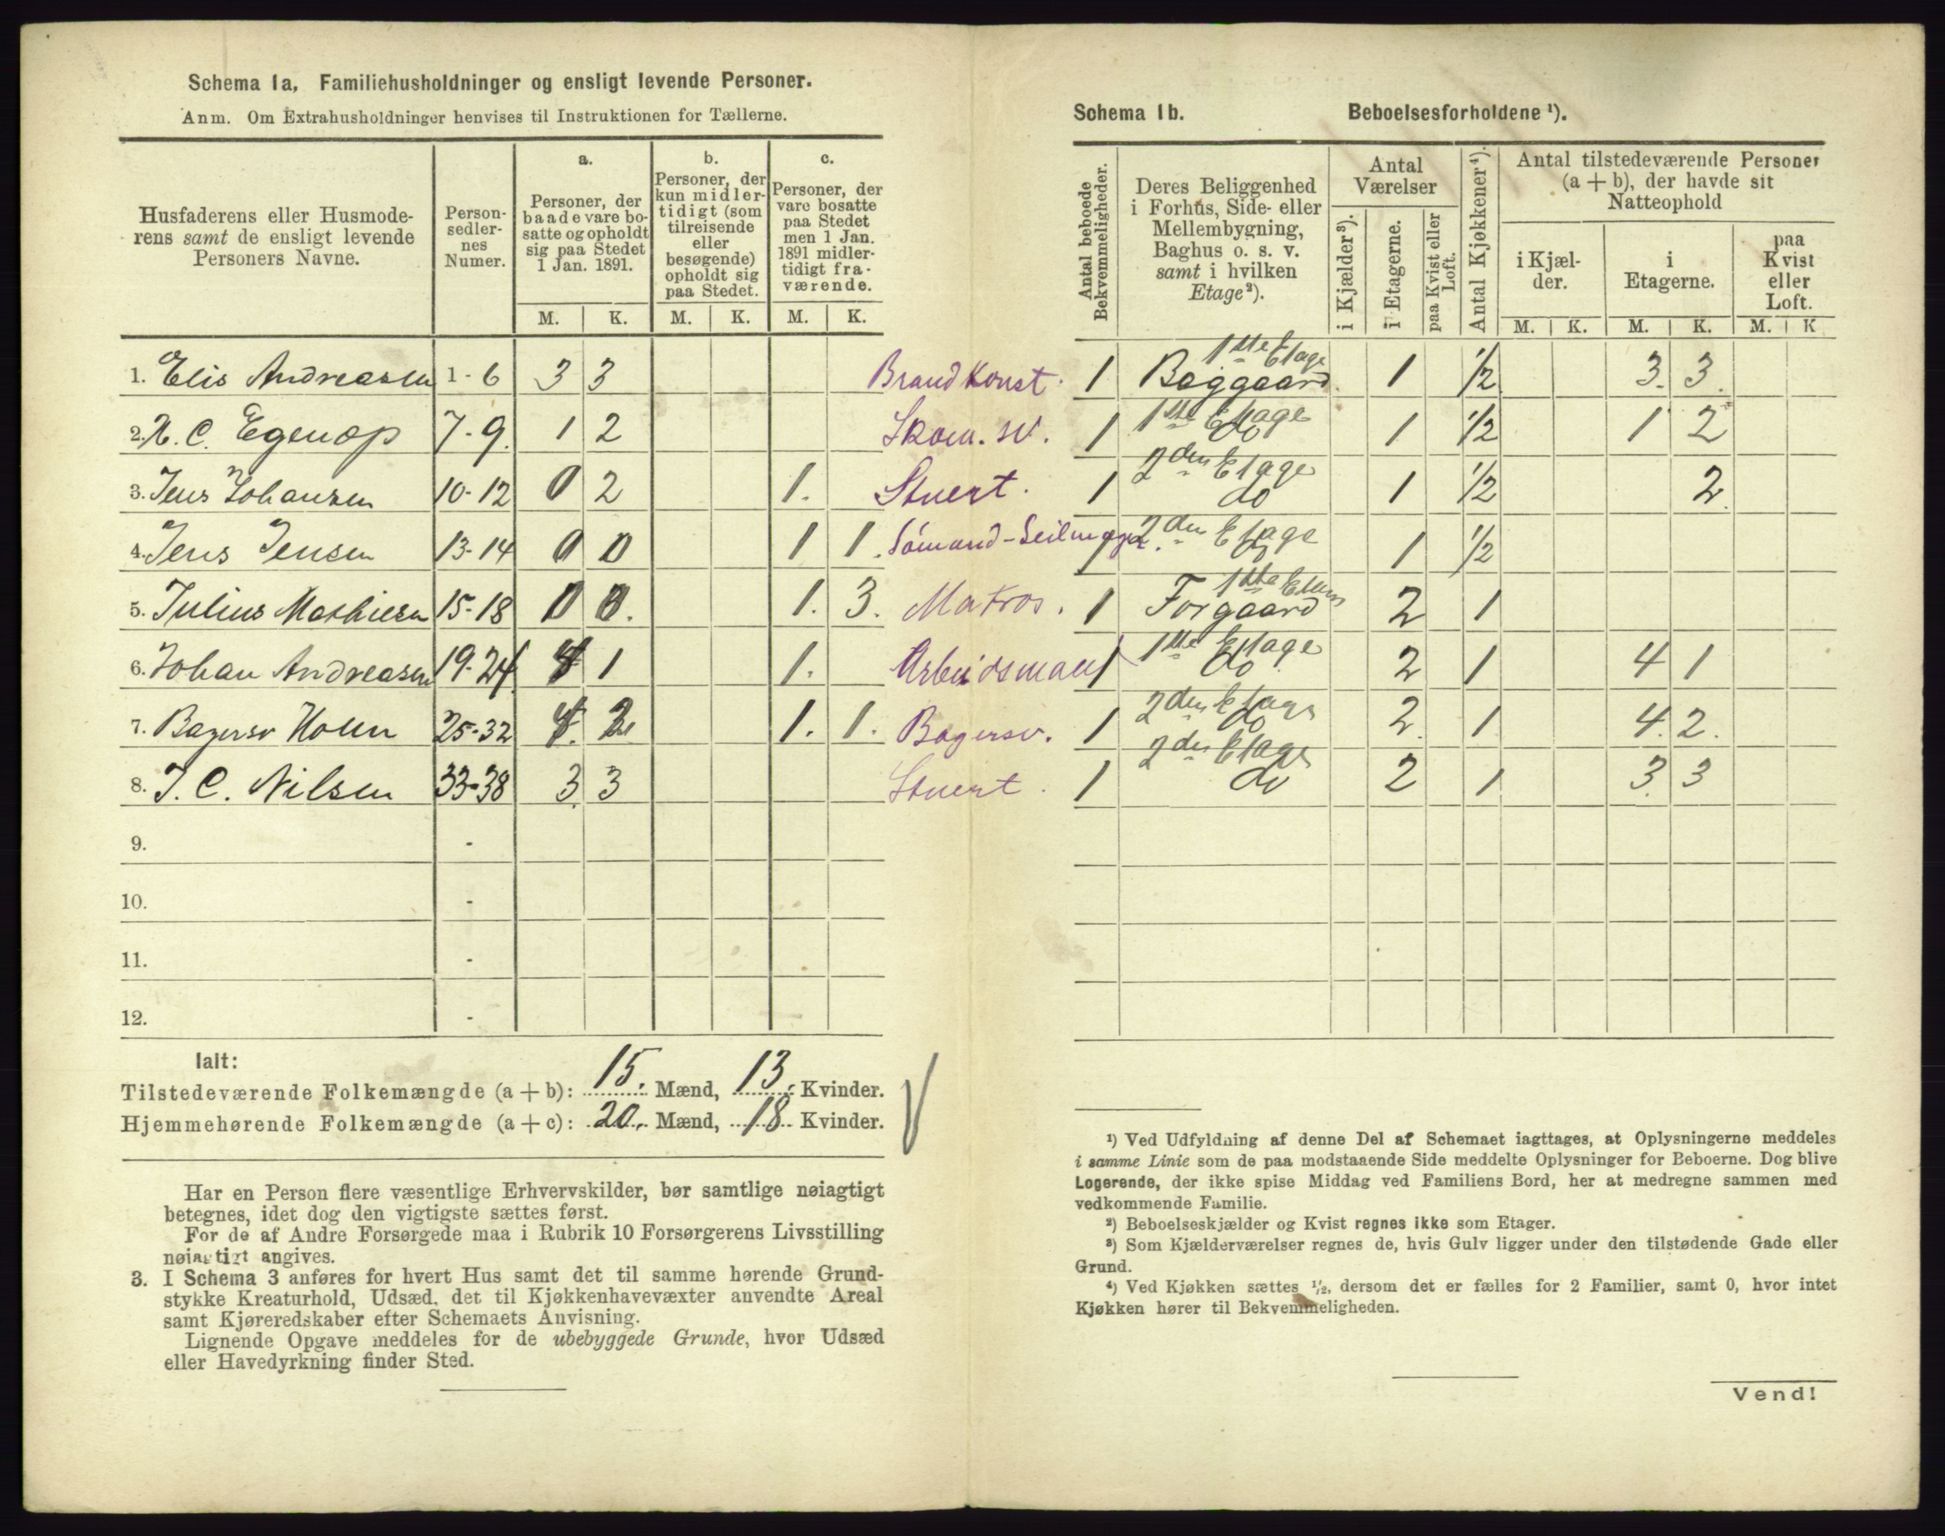 Schema 1a, Familiehusholdninger og ensligt levende Personer.
Anm. Om Extrahusholdninger henvises til Instruktionen for Tællerne.
Husfaderens eller Husmode-
rens samt de ensligt levende
Personers Navne.
Person-
sedler-
nes
Numer.
a.
Personer, der
baade vare bo-
satte og opholdt
sig paa Stedet
1 Jan. 1891.
b.
Personer, der
kun midler-
tidigt (som
tilreisende
eller
besøgende)
opholdt sig
paa Stedet.
c.
Personer, der
vare bosatte
paa Stedet
men 1 Jan.
1891 midler-
tidigt fra-
værende.
M. K. M. K. M. K.
1. Elis Andreasen 1-6 3 3 Brandkonst.
2. N. C. Egenop 7-9. 1 2 Skom. sv.
3. Jens Johansen 10-12 0 2 1. Stuert.
4. Jens Jensen 13-14 0 0 1 1. Sömand-Seilmager.
5. Julius Mathiesen 15-18 0 0. 1. 3. Matros.
6. Johan Andreasen 19-24 4 1 1. Arbeidsmand
7. Bagersv Holm 25-32 4. 2 1. 1. Bagersv.
8. J. C. Nilsen 33-38 3. 3 Stuert.
9. -
10. -
11. -
12. -
Ialt:
Tilstedeværende Folkemængde (a + b): 15. Mænd, 13. Kvinder.
Hjemmehørende Folkemængde (a + c): 20. Mænd, 18 Kvinder.
Har en Person flere væsentlige Erhvervskilder, bør samtlige nøiagtigt
betegnes, idet dog den vigtigste sættes først.
For de af Andre Forsørgede maa i Rubrik 10 Forsørgerens Livsstilling
nøiagtigt angives.
3. I Schema 3 anføres for hvert Hus samt det til samme hørende Grund-
stykke Kreaturhold, Udsæd, det til Kjøkkenhavevæxter anvendte Areal
samt Kjøreredskaber efter Schemaets Anvisning.
Lignende Opgave meddeles for de ubebyggede Grunde, hvor Udsæd
eller Havedyrkning finder Sted.
Schema 1b. Beboelsesforholdene ¹).
Antal beboede
Bekvemmeligheder.
Deres Beliggenhed
i Forhus, Side- eller
Mellembygning,
Baghus o. s. v.
samt i hvilken
Etage²).
Antal
Værelser
i Kjælder³).
i Etagerne.
paa Kvist eller
Loft.
Antal Kjøkkener⁴).
Antal tilstedeværende Personer
(a + b), der havde sit
Natteophold
i Kjæl-
der.
i
Etagerne.
paa
Kvist
eller
Loft.
M. K. M. K. M. K
1ste Etage
1 Baggaard. 1 1/2 3. 3.
1ste Etage
1 do 1 1/2 1 2
2den Etage
1 do 1 1/2 2
2den Etage
1 do 1 1/2
1ste Etage
1 Forgaard 2 1
1ste Etage
1 do 2 1 4 1
2den Etage
1 do 2. 1 4. 2.
2den Etage
1 do 2 1 3. 3
¹) Ved Udfyldning af denne Del af Schemaet iagttages, at Oplysningerne meddeles
i samme Linie som de paa modstaaende Side meddelte Oplysninger for Beboerne. Dog blive
Logerende, der ikke spise Middag ved Familiens Bord, her at medregne sammen med
vedkommende Familie.
²) Beboelseskjælder og Kvist regnes ikke som Etager.
³) Som Kjælderværelser regnes de, hvis Gulv ligger under den tilstødende Gade eller
Grund.
⁴) Ved Kjøkken sættes ½, dersom det er fælles for 2 Familier, samt 0, hvor intet
Kjøkken hører til Bekvemmeligheden.
Vend!